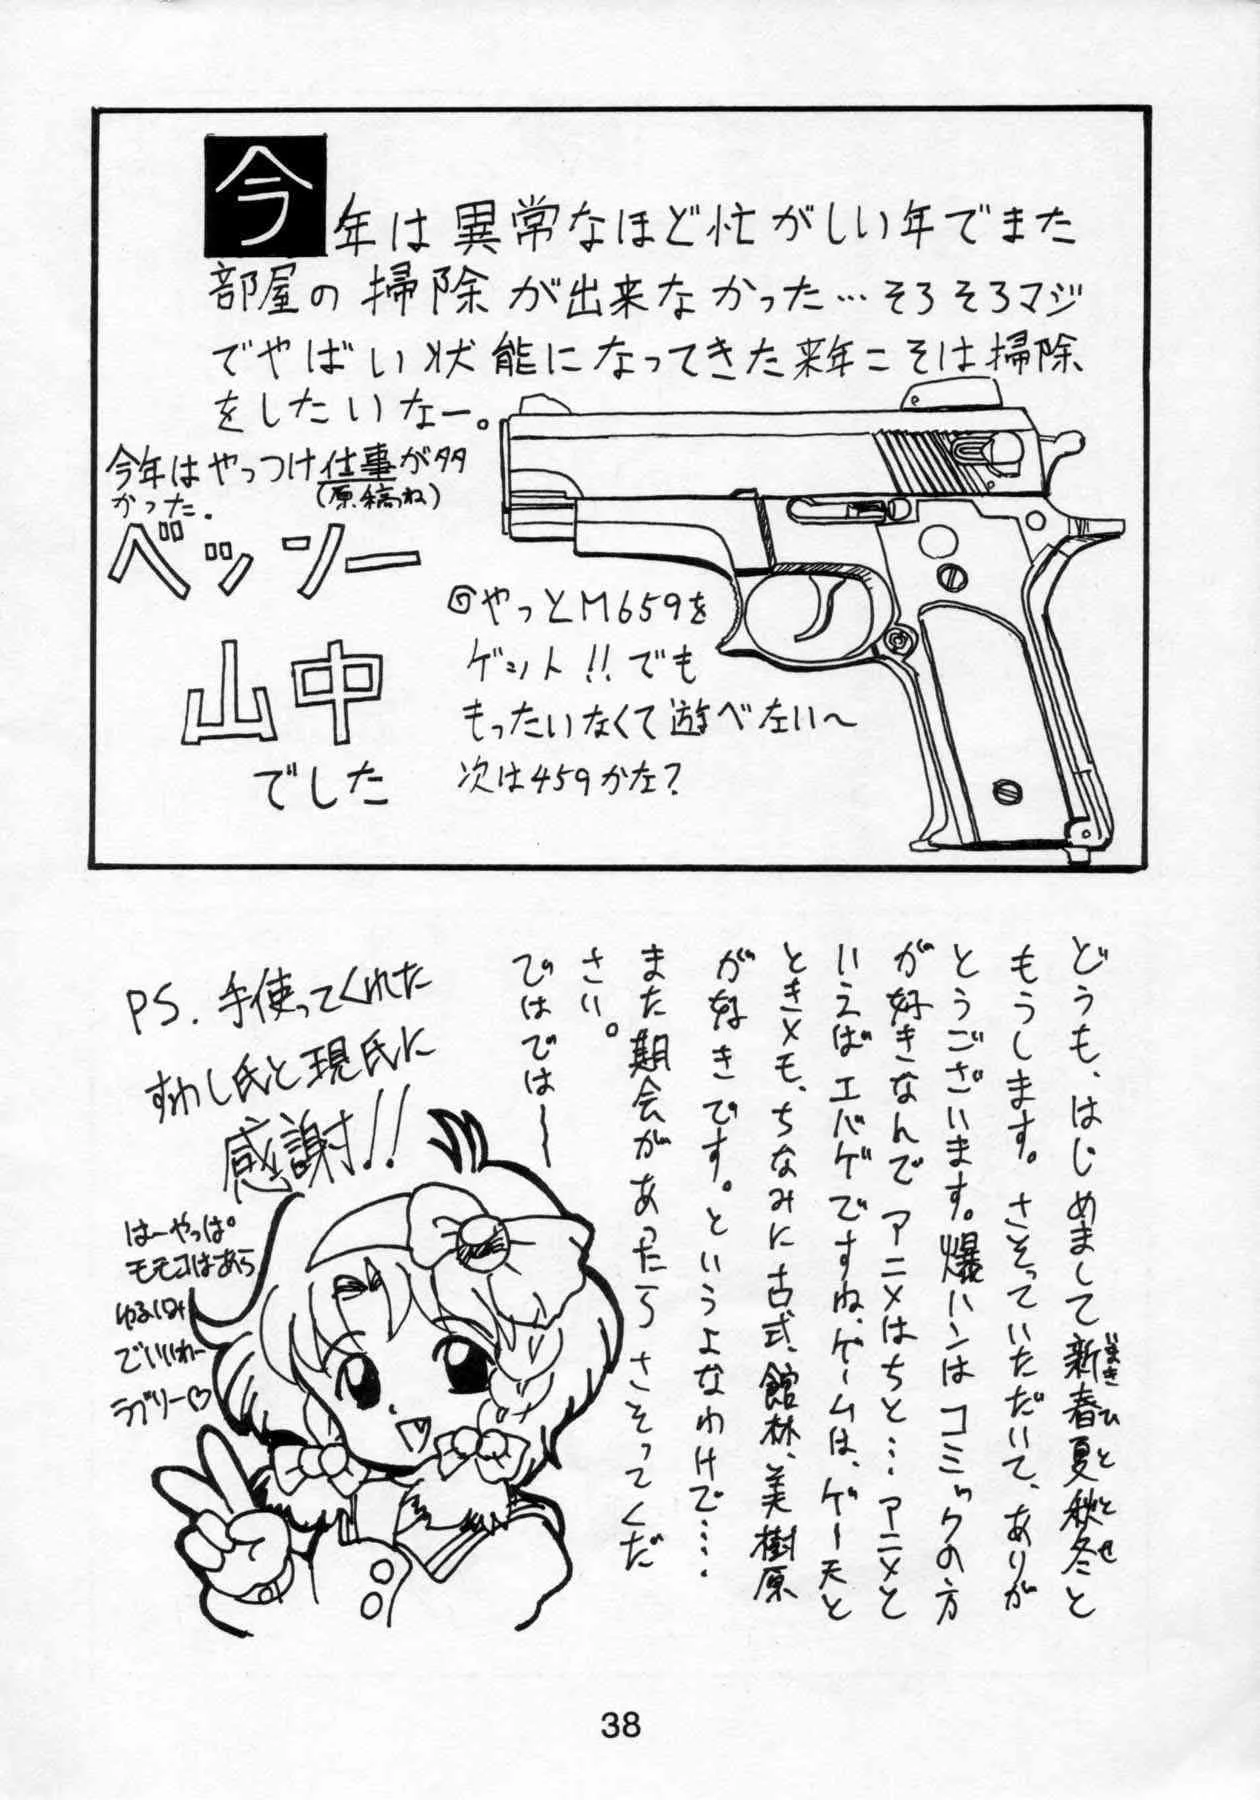 今年は異常なほど忙がしい年でまた
部屋の掃除が出来なかった…そろそろマジ
でやばい状態になってきた来年こそは掃除
をしたいなー。
今年はやっつけ仕事が多
(原稿ね)
かった.
ベッソー
山中
でした
◎やっとM659を
ゲット!!でも
もったいなくて遊べない〜
次は459かな?
どうも、はじめまして新春夏秋冬と
いまきひととせ
もうします。さそっていただいて、ありが
とうございます。爆ハンはコミックの方
が好きなんでアニメはちと…アニメと
いえばエバゲですね、ゲームは、ゲー天と
ときメモ、ちなみに古式、館林、美樹原
が好きです。というよなわけで…
また期会があったらさそってくだ
さい。
ではでは〜
PS. 手使ってくれた
すわし氏と現氏に
感謝!!
はーやっぱ
モモコはあら
ゆるイミ
でいいわー
ラブリー♡
38